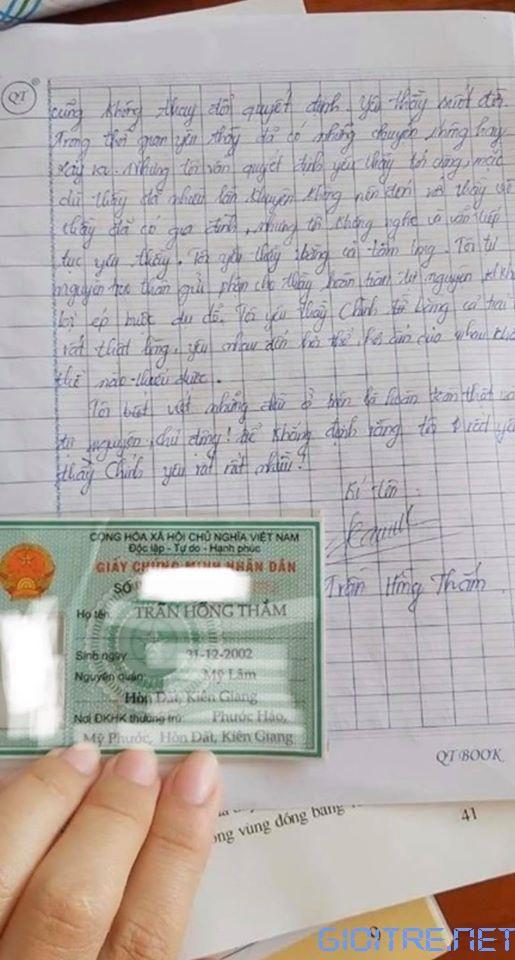 QT
cũng không thay đổi quyết định. Yêu thầy suốt đời.
Trong thời gian yêu thầy đã có những chuyện không hay
xảy ra. Nhưng tôi vẫn quyết định yêu thầy tới cùng, mặc
dù thầy đã nhiều lần khuyên không nên đến với thầy vì
thầy đã có gia đình, nhưng tôi không nghe và vẫn tiếp
tục yêu thầy. Tôi yêu thầy bằng cả tấm lòng. Tôi tự
nguyện trao thân gửi phận cho thầy hoàn toàn tự nguyện
bị ép buộc dụ dỗ. Tôi yêu thầy Chính từ bằng cả trái
rất thật lòng, yêu nhau đến của nhau
thể nào thiếu được.
Tôi biết viết những điều ở trên là hoàn toàn thật và
tự nguyện, chủ động! Để khẳng định rằng tôi yêu
thầy Chính yêu rất rất nhiều!
Kí tên
Trần Hồng Thắm
CỘNG HÒA XÃ HỘI CHỦ NGHĨA VIỆT NAM
Độc lập - Tự do - Hạnh phúc
GIẤY CHỨNG MINH NHÂN DÂN
SỐ
Họ tên: TRẦN HỒNG THẮM
Sinh ngày: 31-12-2002
Nguyên quán: Mỹ Lâm
Hòn Đất, Kiên Giang
Nơi ĐKHK thường trú: Phước Hảo,
Mỹ Phước, Hòn Đất, Kiên Giang
QT BOOK
ong vùng đồng bằng
41
9
GIOITRE.NET